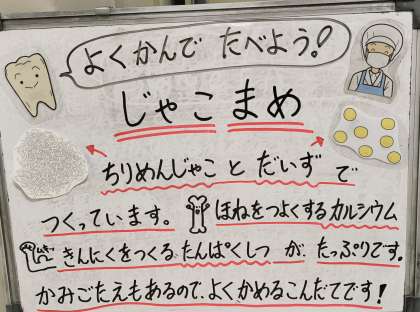 よくかんで たべよう!
じゃこ まめ
ちりめんじゃこ と だいず で
つくっています。 ほねをつよくするカルシウム
きんにくをつくる たんぱくしつ が、たっぷりです。
かみごたえもあるので、よくかめるこんだてです!